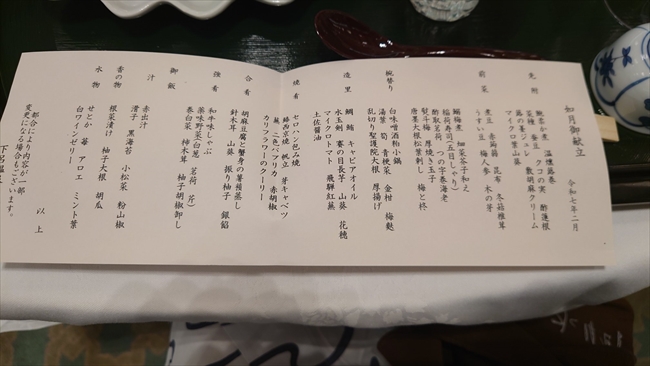 如月御献立
令和七年二月
先附
鮑柔か煮 温燻藤巻
菊花 蚕豆 クコの実 酢蓮根
藤の薹ジュレ 数胡麻クリーム
マイクロ葉山葵
前菜
鰯梅煮 畑菜辛子和え
煮豆 赤蒟蒻 昆布 冬菇椎茸
うすい豆 梅人参 木の芽
稲荷寿司（五目しゃり）
酢取茗荷 つの字巻海老
熨斗梅 厚焼き玉子
唐墨大根松葉刺し 梅と柊
椀替り
白味噌酒粕小鍋
湯葉 筍 青梗菜 金柑 梅麩
乱切り聖護院大根 厚揚げ
造里
鯛 鮪 キャビアオイル
水玉剣 賽の目長芋 山葵 花穂
マイクロトマト 飛騨紅蕪
土佐醤油
焼肴
セロハン包み焼
鰆西京焼 帆立 芽キャベツ
蕪 二色パプリカ 赤胡椒
カリフラワーのクーリー
合肴
胡麻豆腐と蟹身の薯蕷蒸し
針木耳 山葵 振り柚子 銀餡
強肴
和牛味しゃぶ
薬味野菜（白葱 茗荷 芹）
巻白菜 柿木茸 柚子胡椒卸し
御飯
汁
赤出汁
滑子 黒海苔 小松菜 粉山椒
香の物
根菜漬け 柚子大根 胡瓜
水物
せとか 苺 アロエ ミント葉
白ワインゼリー
以上
都合により内容が一部
変更になる場合もございます。
下呂温泉